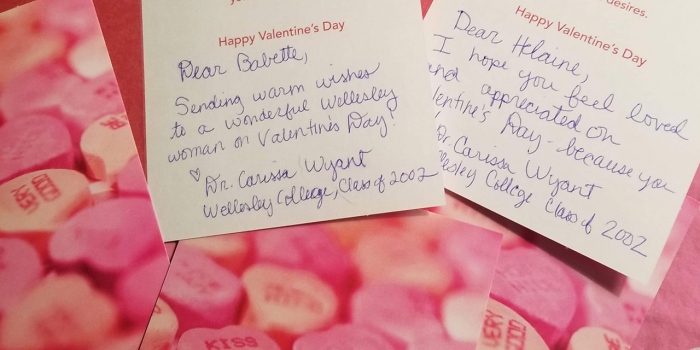 Happy Valentine's Day
Dear Babette,
Sending warm wishes
to a wonderful Wellesley
woman on Valentine's Day!
♡ Dr. Carissa Wyant
Wellesley College, Class of 2002
desires.
Happy Valentine's Day
Dear Helaine,
I hope you feel loved
and appreciated on
Valentine's Day - because you
Dr. Carissa Wyant
College Class of 2002
VERY
GOOD
KISS
VERY
GOOD